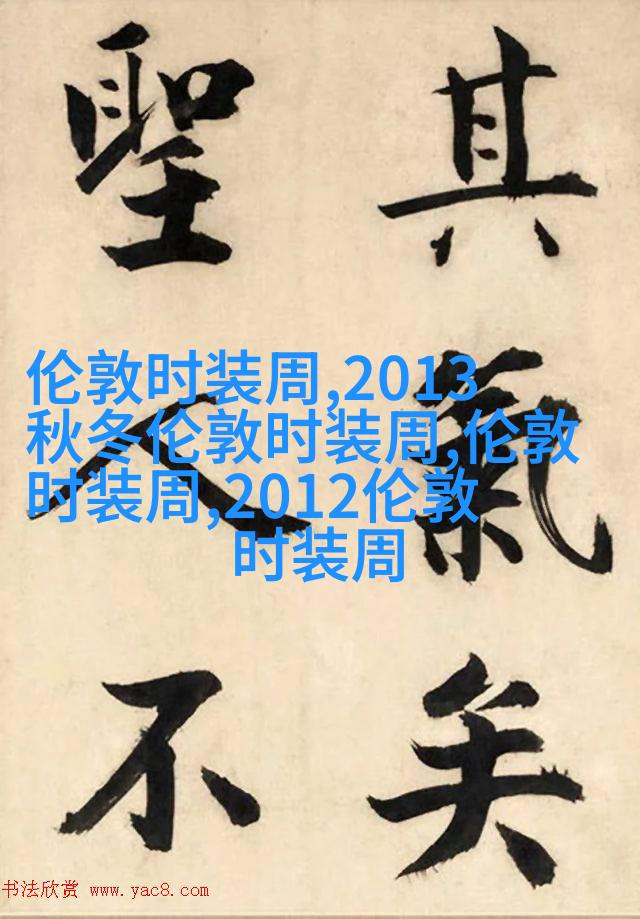 其氣矣
聖人不
伦敦时装周,2013
秋冬伦敦时装周,伦敦
时装周,2012伦敦
时装周
书法欣赏 www.yac8.com